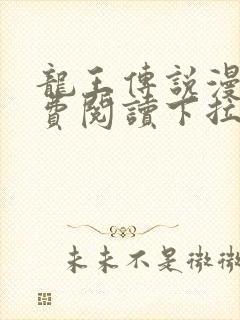 龍王傳說漫
費閱讀下拉
未未不是微微